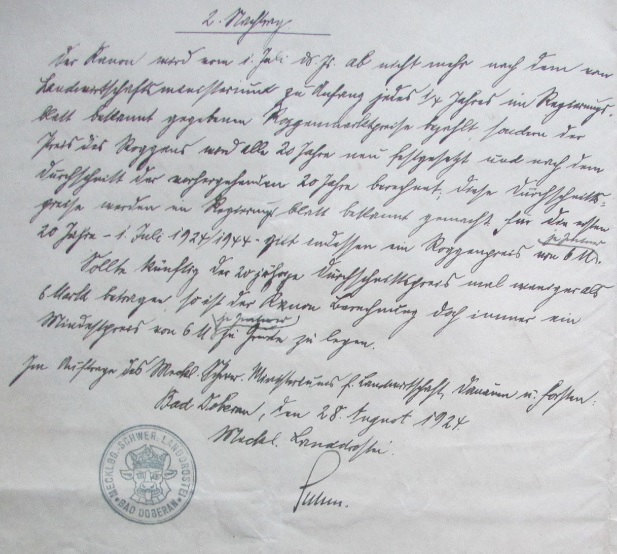 2. Nachtrag
Der Kanon wird vom 1. Juli ds. Js. ab nicht mehr nach dem vom
Landwirtschaftsministerium zu Anfang jedes 1/4 Jahres im Regierungs-
blatt bekannt gegebenen Roggenmarktpreise bezahlt, sondern der
Preis des Roggens wird alle 20 Jahre neu festgesetzt und nach dem
Durchschnitt der vorhergehenden 20 Jahre berechnet, diese Durchschnitts-
preise werden im Regierungsblatt bekannt gemacht. Für die ersten
20 Jahre - 1. Juli 1924/1944 - gilt indessen ein Roggenpreis von 6 M.
je Zentner
Sollte künftig der 20 jährige Durchschnittspreis mal weniger als
6 Mark betragen, so ist der Kanon Berechnung doch immer ein
Mindestpreis von 6 M. je Zentner zu Grunde zu legen.
Im Auftrage des Meckl. Schwer. Ministeriums f. Landwirtschaft, Domänen u. Forsten:
Bad Doberan, den 28. August 1924.
Meckl. Landdrostei.
MECKLBG.-SCHWER. LANDDROSTEI
BAD DOBERAN